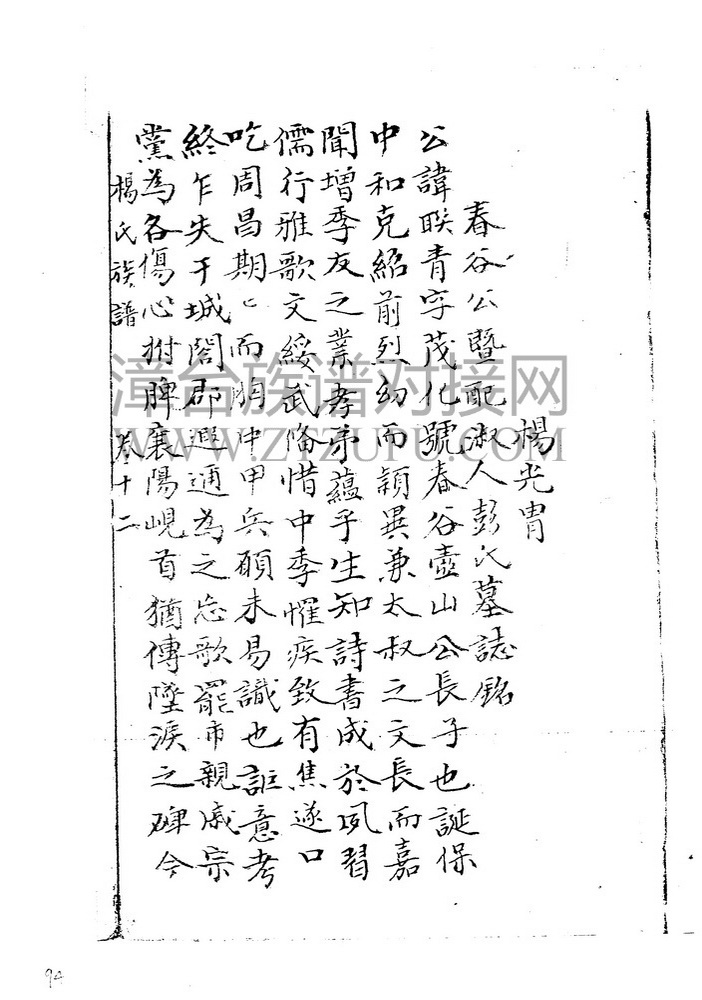 楊光胄
春谷公暨配淑人彭氏墓誌銘
公諱联青字茂化號春谷壺山公長子也誕保
中和克紹前烈幼而穎異兼太叔之文長而嘉
聞增季友之業孝弟蘊乎生知詩書成於夙習
儒行雅歌文綏武偹惜中季懼疾致有焦遂口
吃周昌期〻而胸中甲兵碩未易識也詎意考
終乍失干城閤郡遐邇為之忘歌罷市親戚宗
黨為各傷心拊脾襄陽峴首猶傳墮淚之碑今
楊氏族譜 卷十二
漳台族谱对接网
WWW.ZTZUPU.COM
94